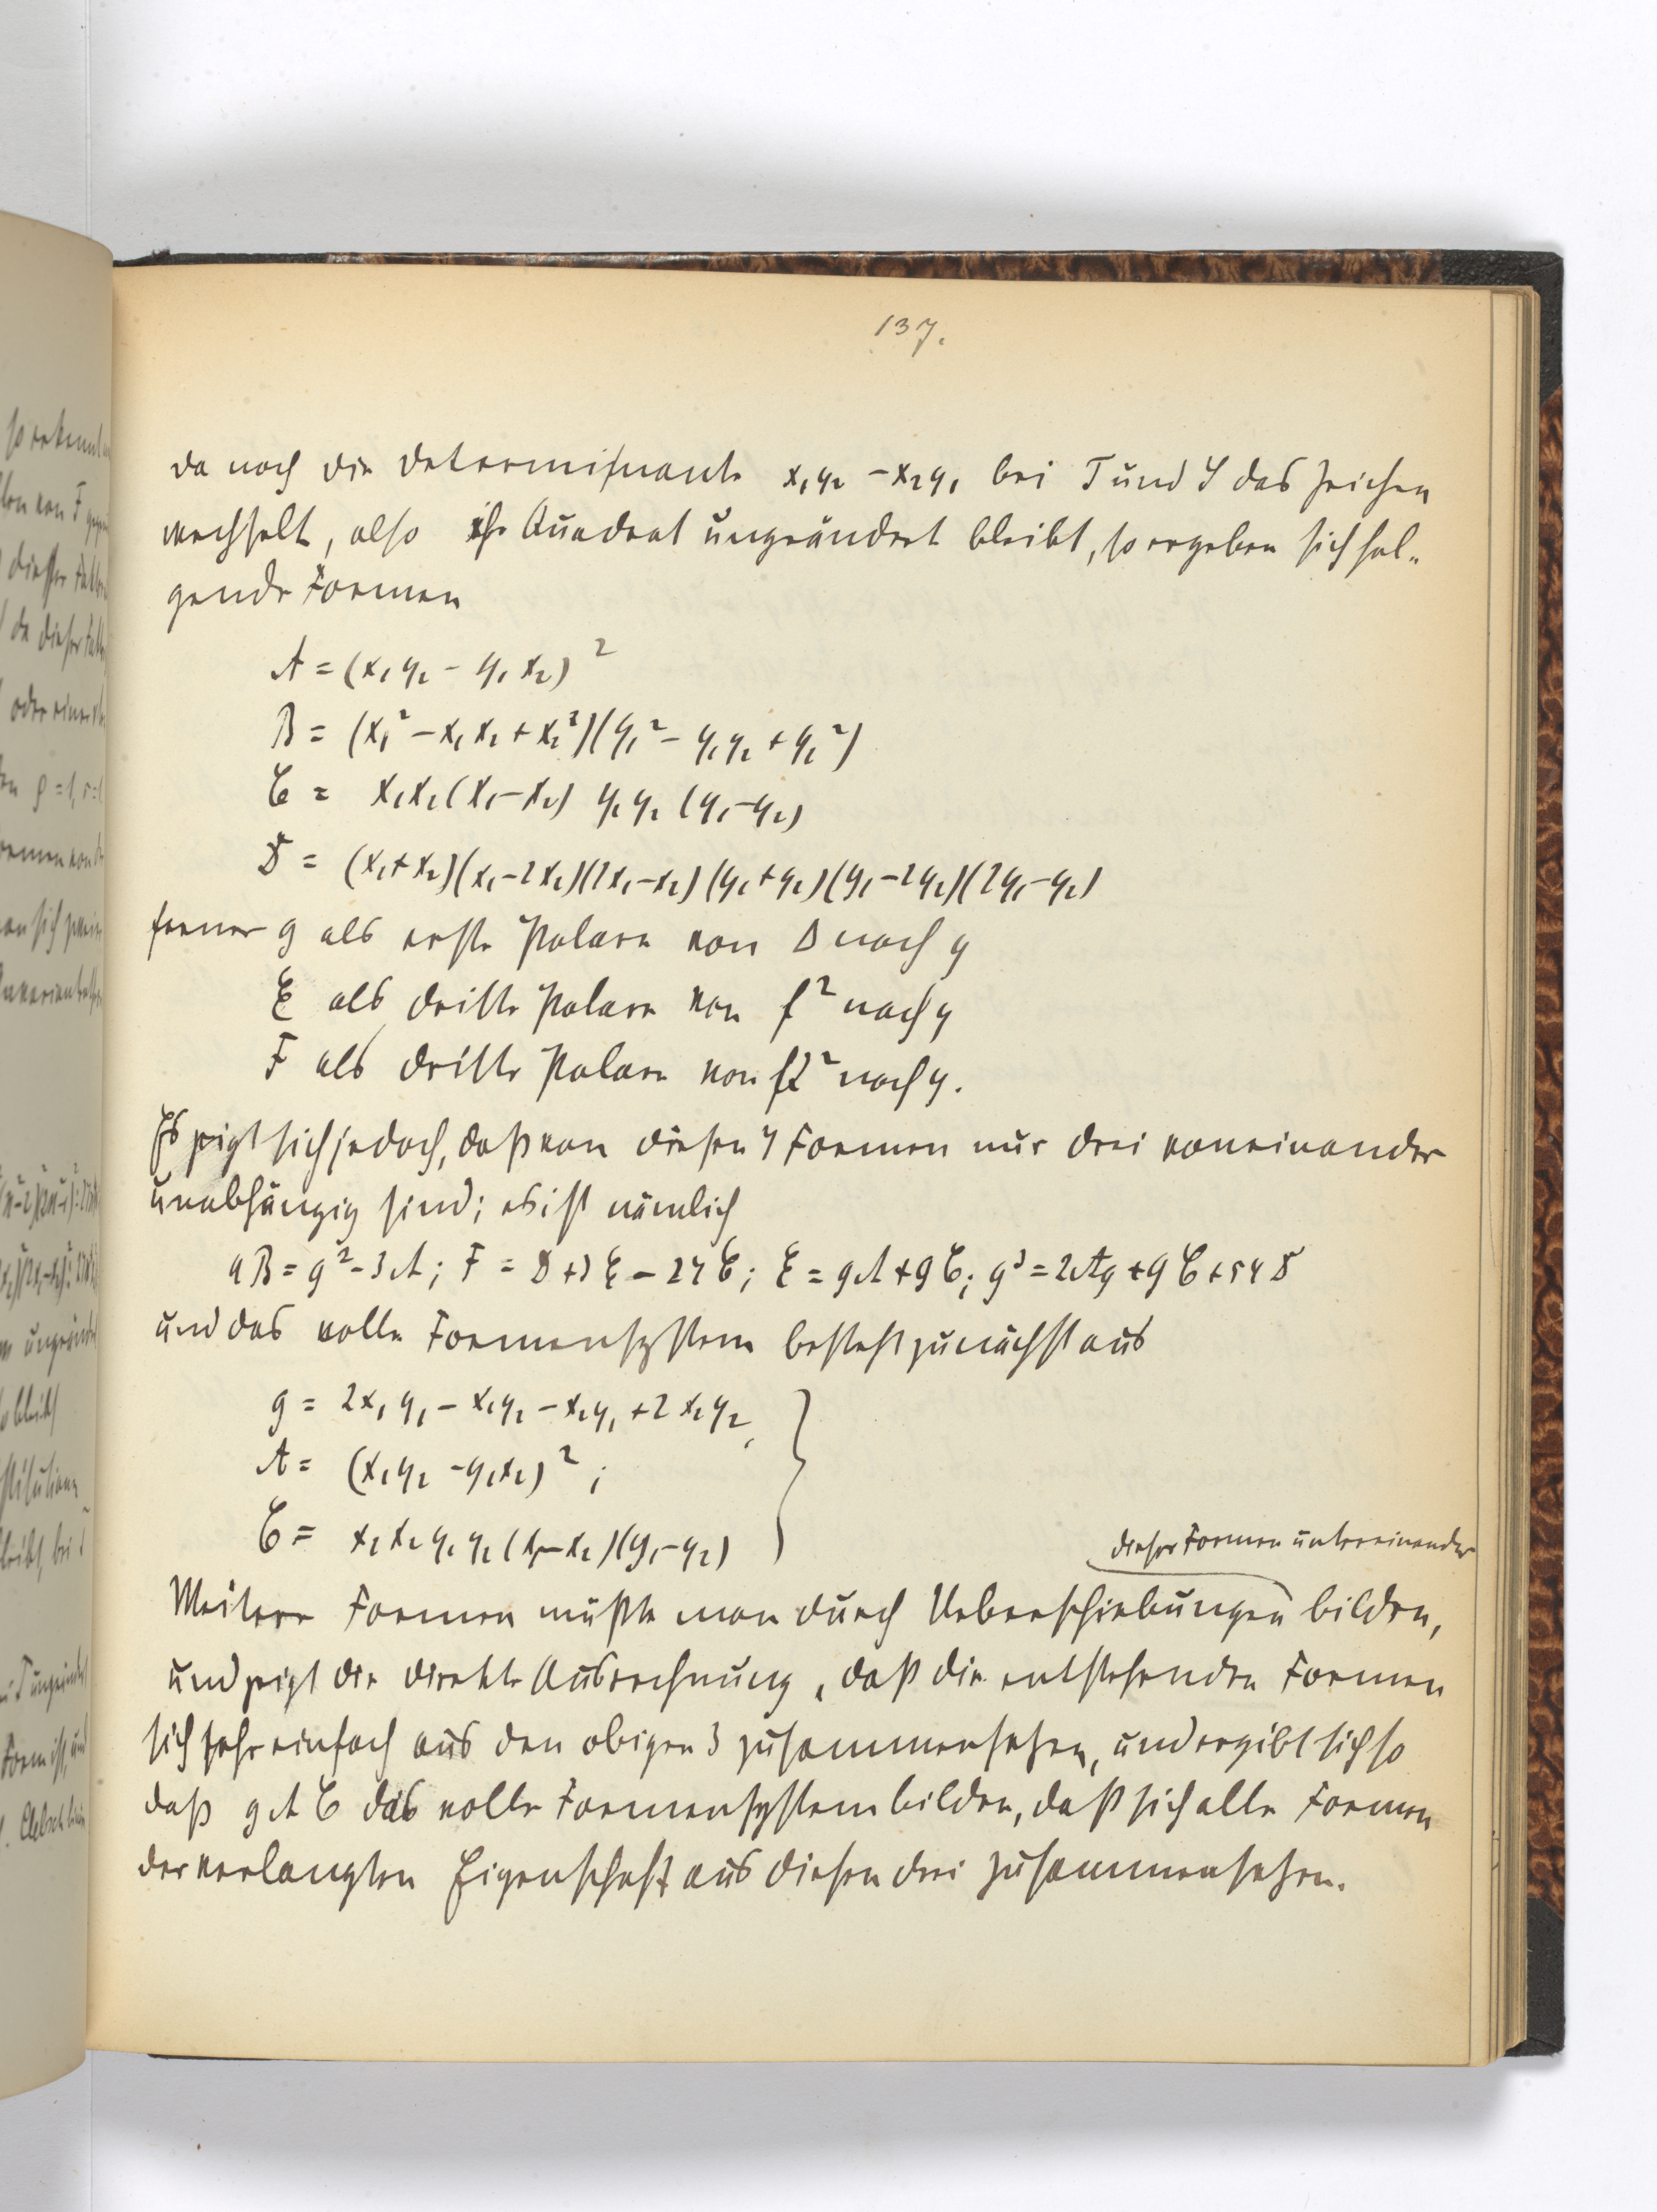 137.
da noch die Determinante x₁y₂ - x₂y₁ bei T und S das Zeichen
wechselt, also ihr Quadrat ungeändert bleibt, so ergeben sich fol-
gende Formen
A = (x₁y₂ - y₁x₂)²
B = (x₁² - x₁x₂ + x₂²)(y₁² - y₁y₂ + y₂²)
C = x₁x₂(x₁-x₂) y₁y₂(y₁-y₂)
D = (x₁+x₂)(x₁-2x₂)(2x₁-x₂)(y₁+y₂)(y₁-2y₂)(2y₁-y₂)
ferner g als erste Polare von Δ nach y
E als dritte Polare von f² nach y
F als dritte Polare von  nach y.
Es zeigt sich jedoch, daß von diesen 7 Formen nur drei voneinander
unabhängig sind; es ist nämlich
4B = g² - 3A; F = D + 3E - 27C; E = gA + 9C; g³ = 2Ag + 9C + 54D
und das volle Formensystem besteht zunächst aus
g = 2x₁y₁ - x₁y₂ - x₂y₁ + 2x₂y₂,
A = (x₁y₂ - y₁x₂)²;
C = x₁x₂y₁y₂(x₁-x₂)(y₁-y₂)
dieser Formen untereinander
Weitere Formen müßte man durch Ueberschiebungen bilden,
und zeigt die direkte Ausrechnung, daß die entstehenden Formen
sich sehr einfach aus den obigen 3 zusammensetzen, und ergibt sich so
daß g A C das volle Formensystem bilden, daß sich alle Formen
der verlangten Eigenschaft aus diesen drei zusammensetzen.